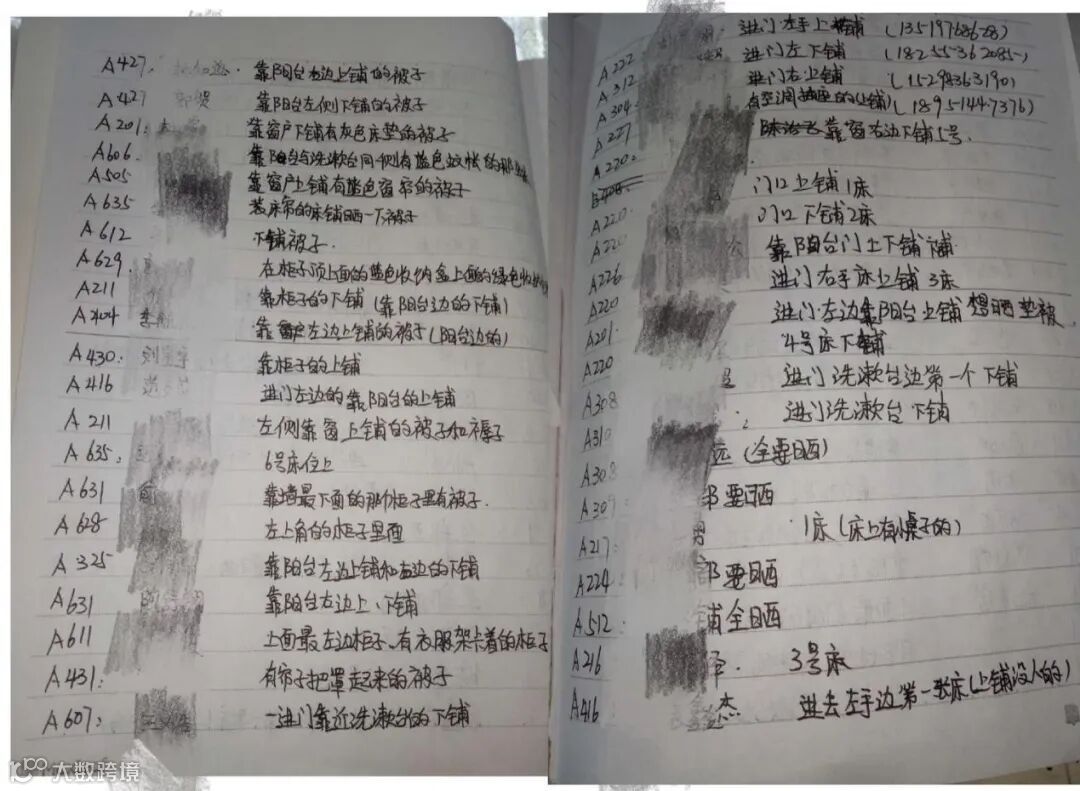 A427: 靠阳台右边上铺的被子
A427 郭 靠阳台左侧下铺的被子
A201: 靠窗户下铺有灰色床垫的被子
A606. 靠阳台与洗漱台同侧有蓝色蚊帐的那
A505 靠窗户上铺有蓝色窗帘的被子
A635 装床帘的床铺晒一下被子
A612 下铺被子.
A629. 在柜子顶上面的蓝色收纳盒上面的绿色收
A211 靠柜子的下铺(靠阳台边的下铺)
A404 李 靠窗户左边上铺的被子(阳台边的)
A430: 刘 靠柜子的上铺
A416 进门左边的靠阳台的上铺
A211 左侧靠窗上铺的被子和褥子
A635. 6号床位上
A631 靠墙最下面的那个柜子里有被子.
A628 左上角的柜子里面
A325 靠阳台左边上铺和右边的下铺
A631 靠阳台左边上、下铺
A611 上面最左边柜子、有衣服架卡着的柜子
A431: 有帘子把罩起来的被子
A607: 一进门靠近洗漱台的下铺
A222 进门左手上铺 (13519768628)
A312 进门左下铺 (18255362085)
A304 进门右上铺 (15298363190)
A227 有空调插座的(上铺)(18951447376)
A220. 靠窗右边下铺5号.
A220 门口上铺1床
A220 门口下铺2床
A226 靠阳台门上下铺
A220 进门右手床上铺3床
A201 进门左边靠阳台上铺 想晒垫被
A220 4号床下铺
A308 进门洗漱台边第一个下铺
A310 进门洗漱台下铺
A308 (全要晒)
A307 要晒
A217: 男 1床(床上有小桌子的)
A224 要晒
A512: 铺全晒
A216 泽. 3号床
A416 杰 进去左手边第一张床(上铺没人的)
大数跨境